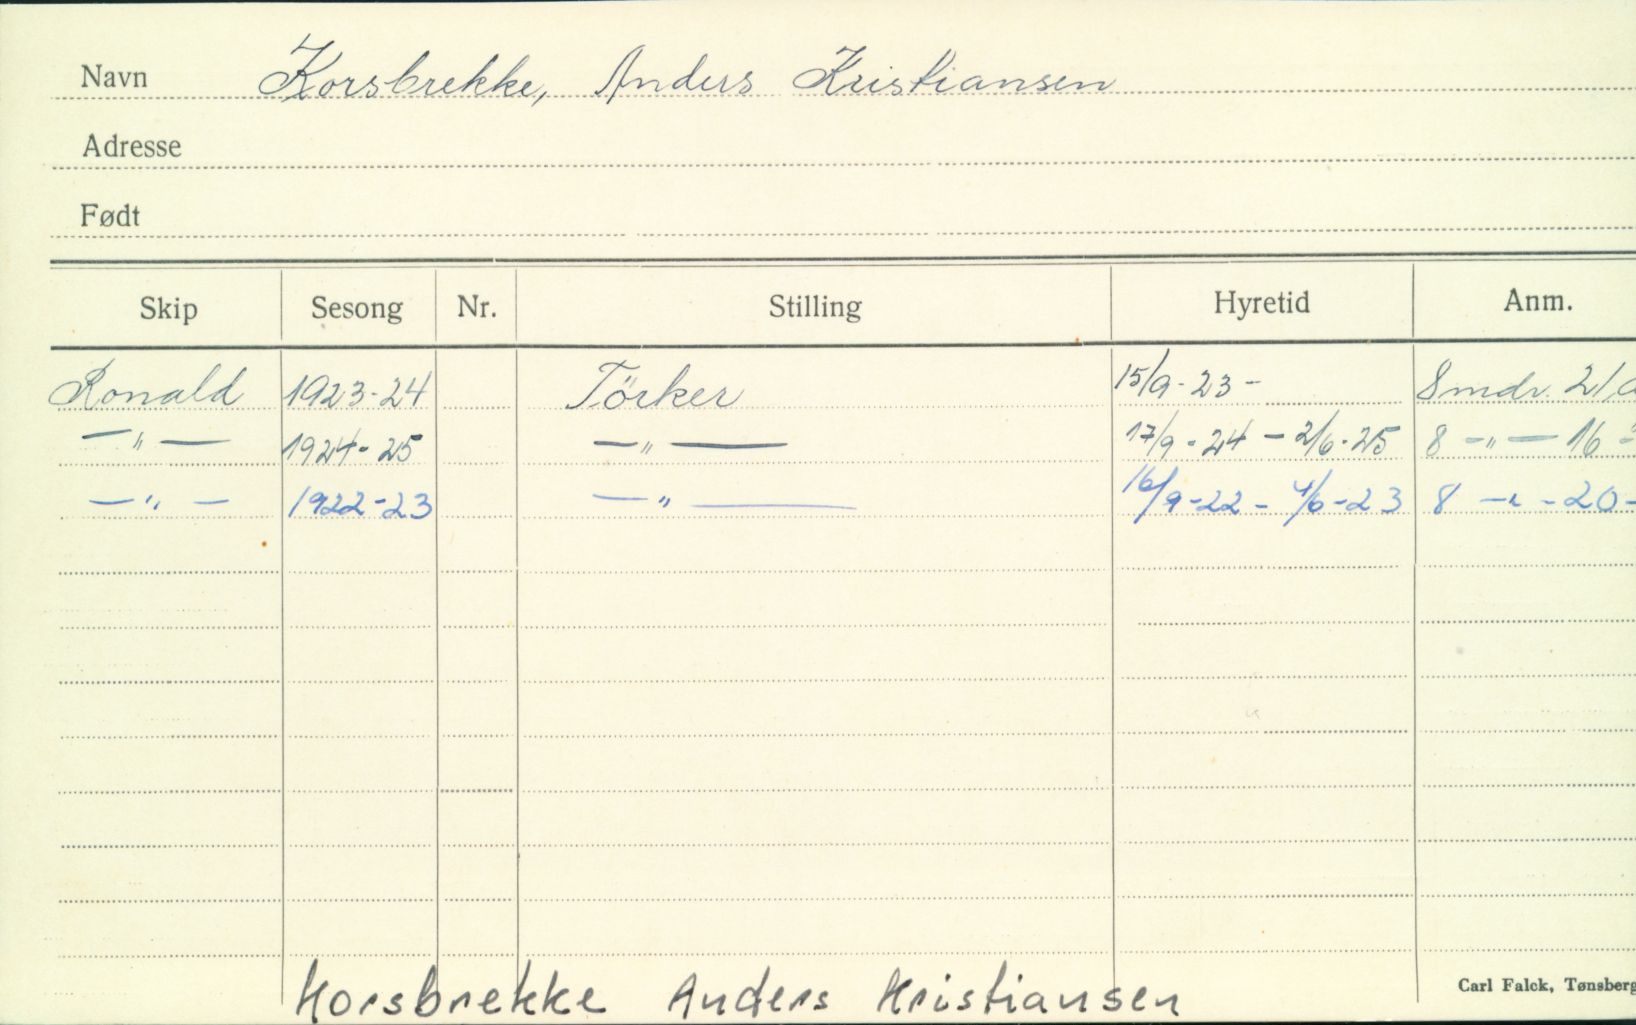 Navn Korsbrekke, Anders Kristiansen
Adresse
Født
Skip Sesong Nr. Stilling Hyretid Anm.
Ronald 1923-24 Törker 15/9-23- 8 mdr. 21
—"— 1924-25 —"— 17/9-24 - 2/6-25 8 -"- 16
—"— 1922-23 —"— 16/9-22 - 4/6-23 8 -"- 20-
Korsbrekke Anders Kristiansen
Carl Falck, Tønsberg